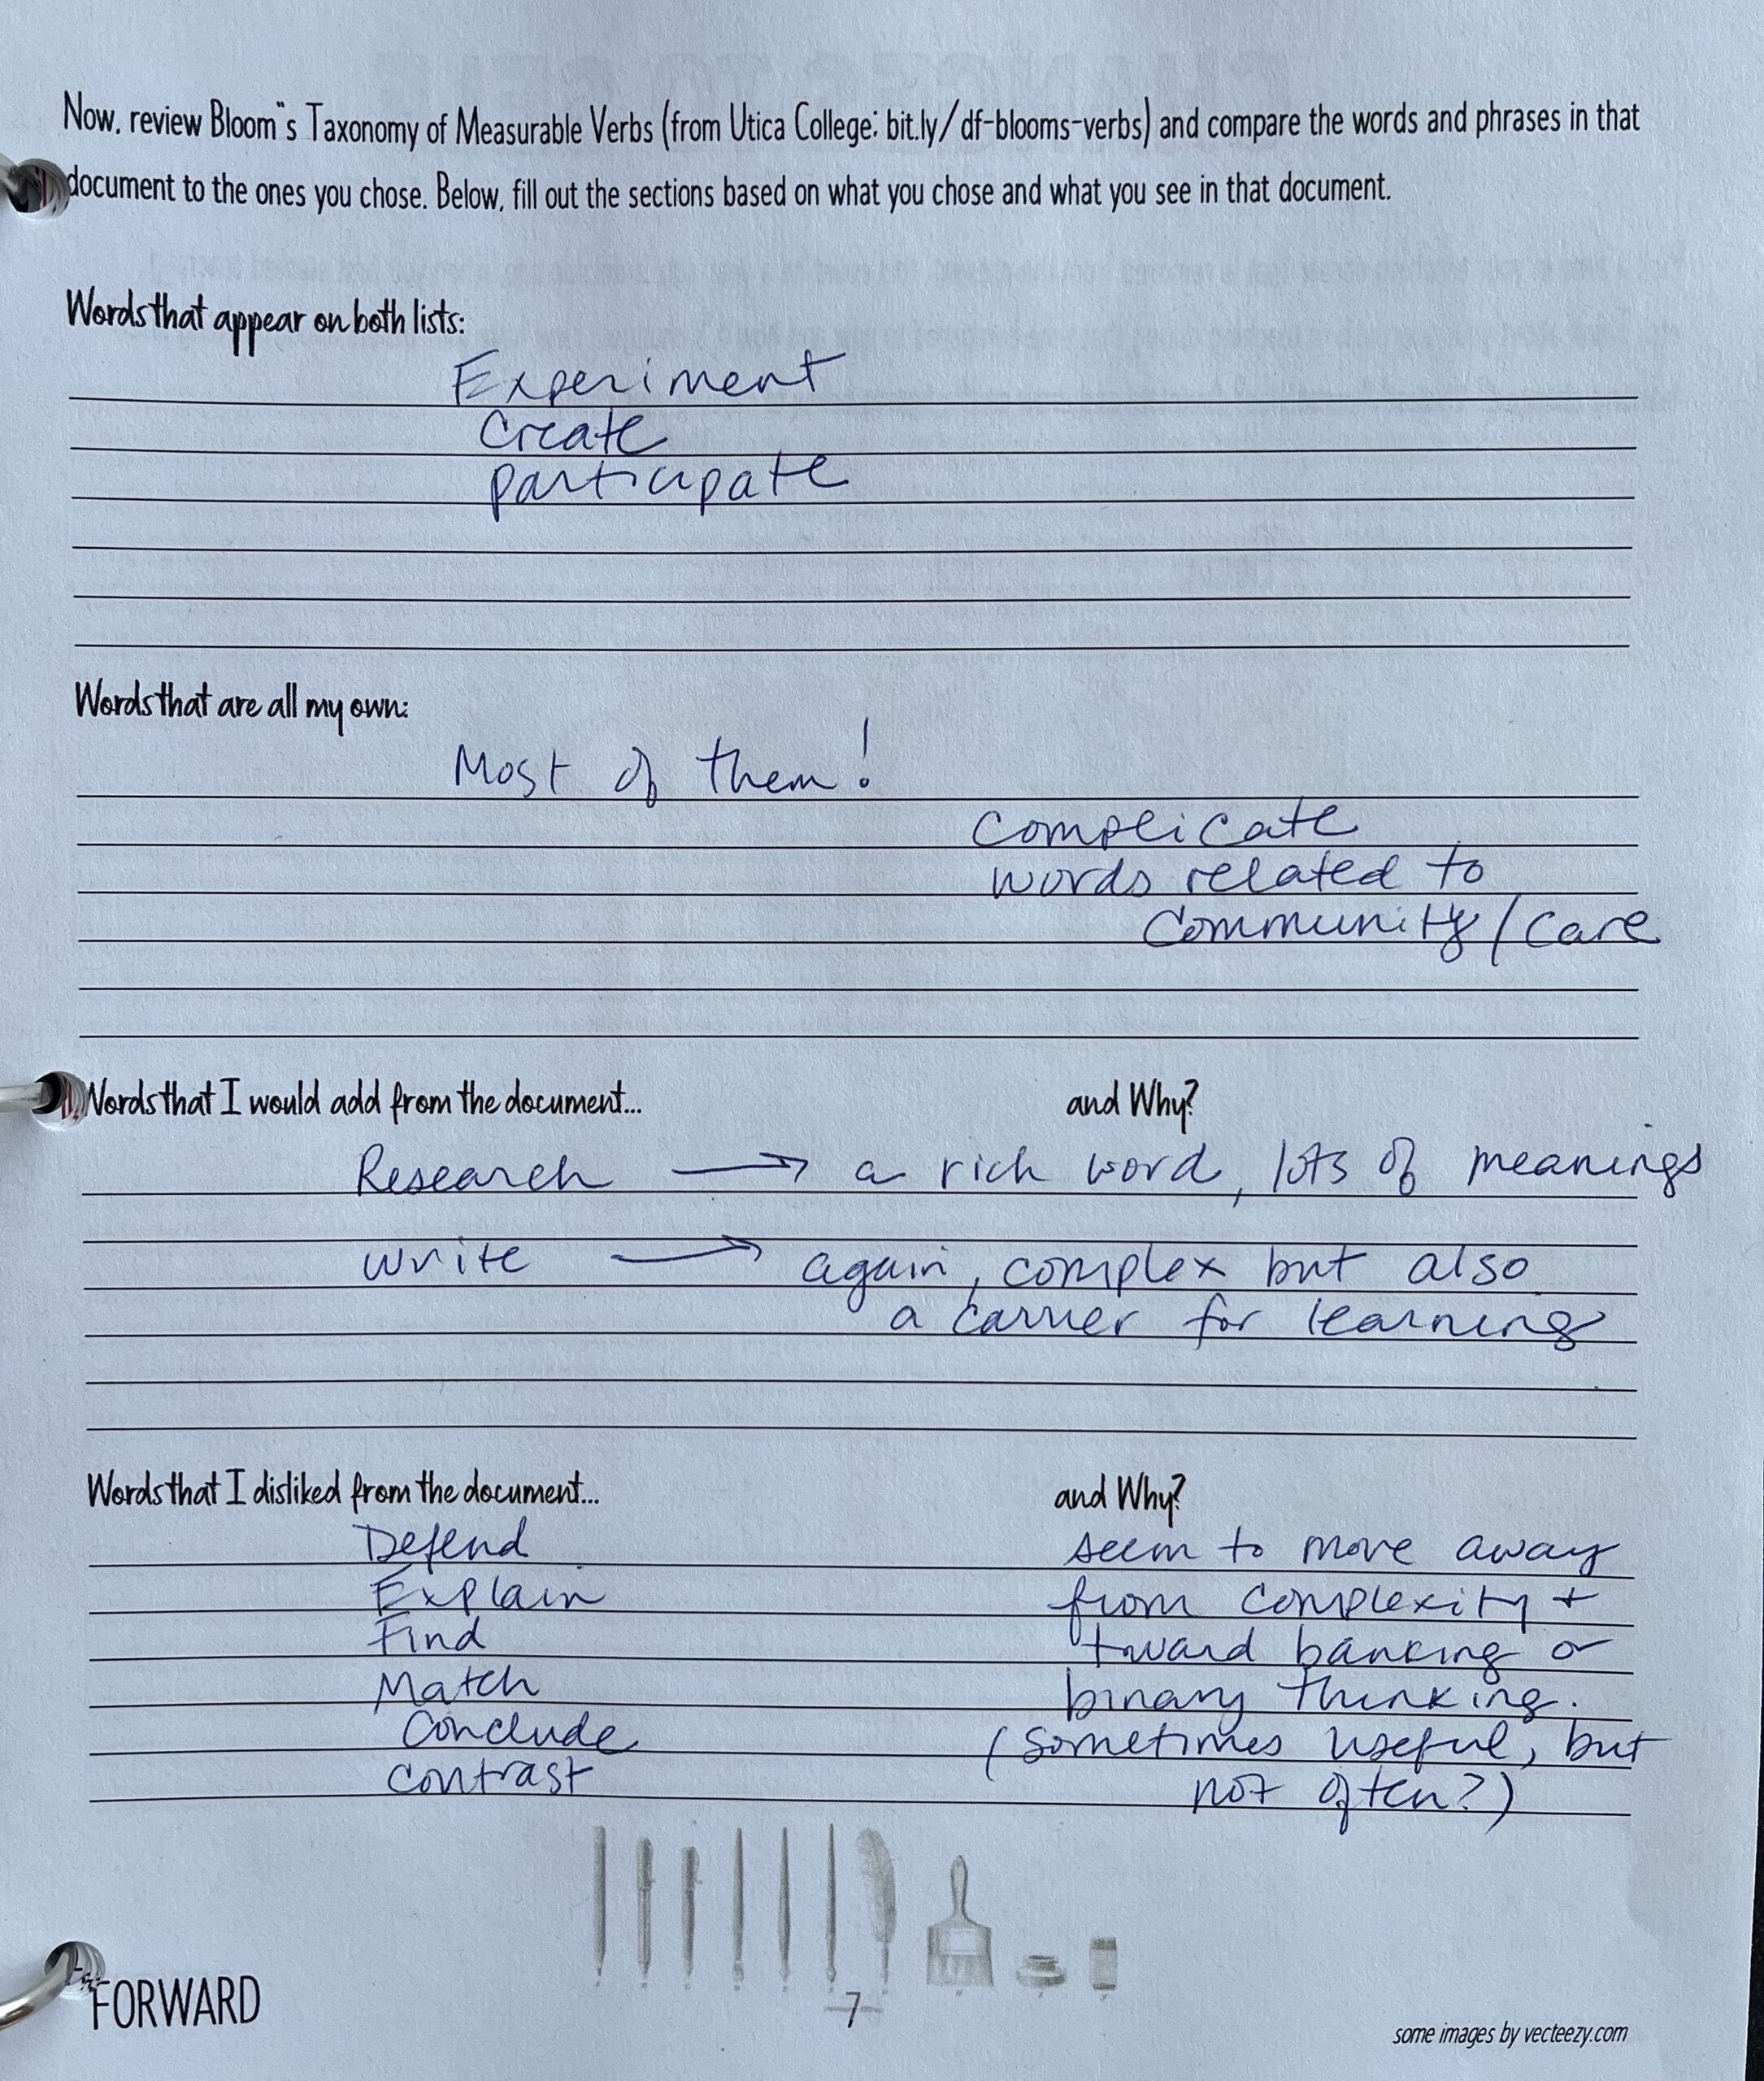 Now, review Bloom"s Taxonomy of Measurable Verbs (from Utica College: bit.ly/df-blooms-verbs) and compare the words and phrases in that
document to the ones you chose. Below, fill out the sections based on what you chose and what you see in that document.
Words that appear on both lists:
Experiment
Create
participate
Words that are all my own:
Most of them!
Complicate
words related to
Community/Care
Words that I would add from the document... and Why?
Research → a rich word, lots of meanings
write → again, complex but also
a carrier for learning
Words that I disliked from the document... and Why?
Defend seem to move away
Explain from complexity +
Find toward banking or
Match binary thinking.
Conclude (sometimes useful, but
contrast not often?)
FORWARD
7
some images by vecteezy.com